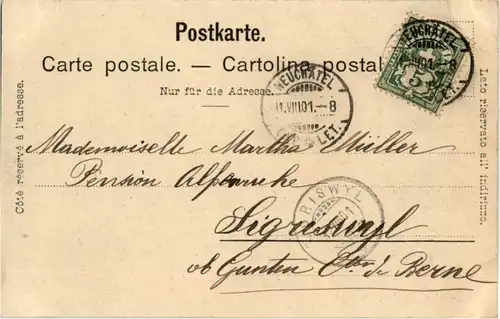 Postkarte.
Carte postale. — Cartolina postal
Nur für die Adresse.
Côté réservé à l'adresse.
Lato riservato all' indirizzo.
NEUCHÂTEL
VIII 01.–8
LET.
NEUCHÂTEL
VIII 01.–8
LET.
5
Mademoiselle Martha Müller
Pension Alpenruhe
RISWYL
Sigriswyl
ob Gunten Ctn de Berne